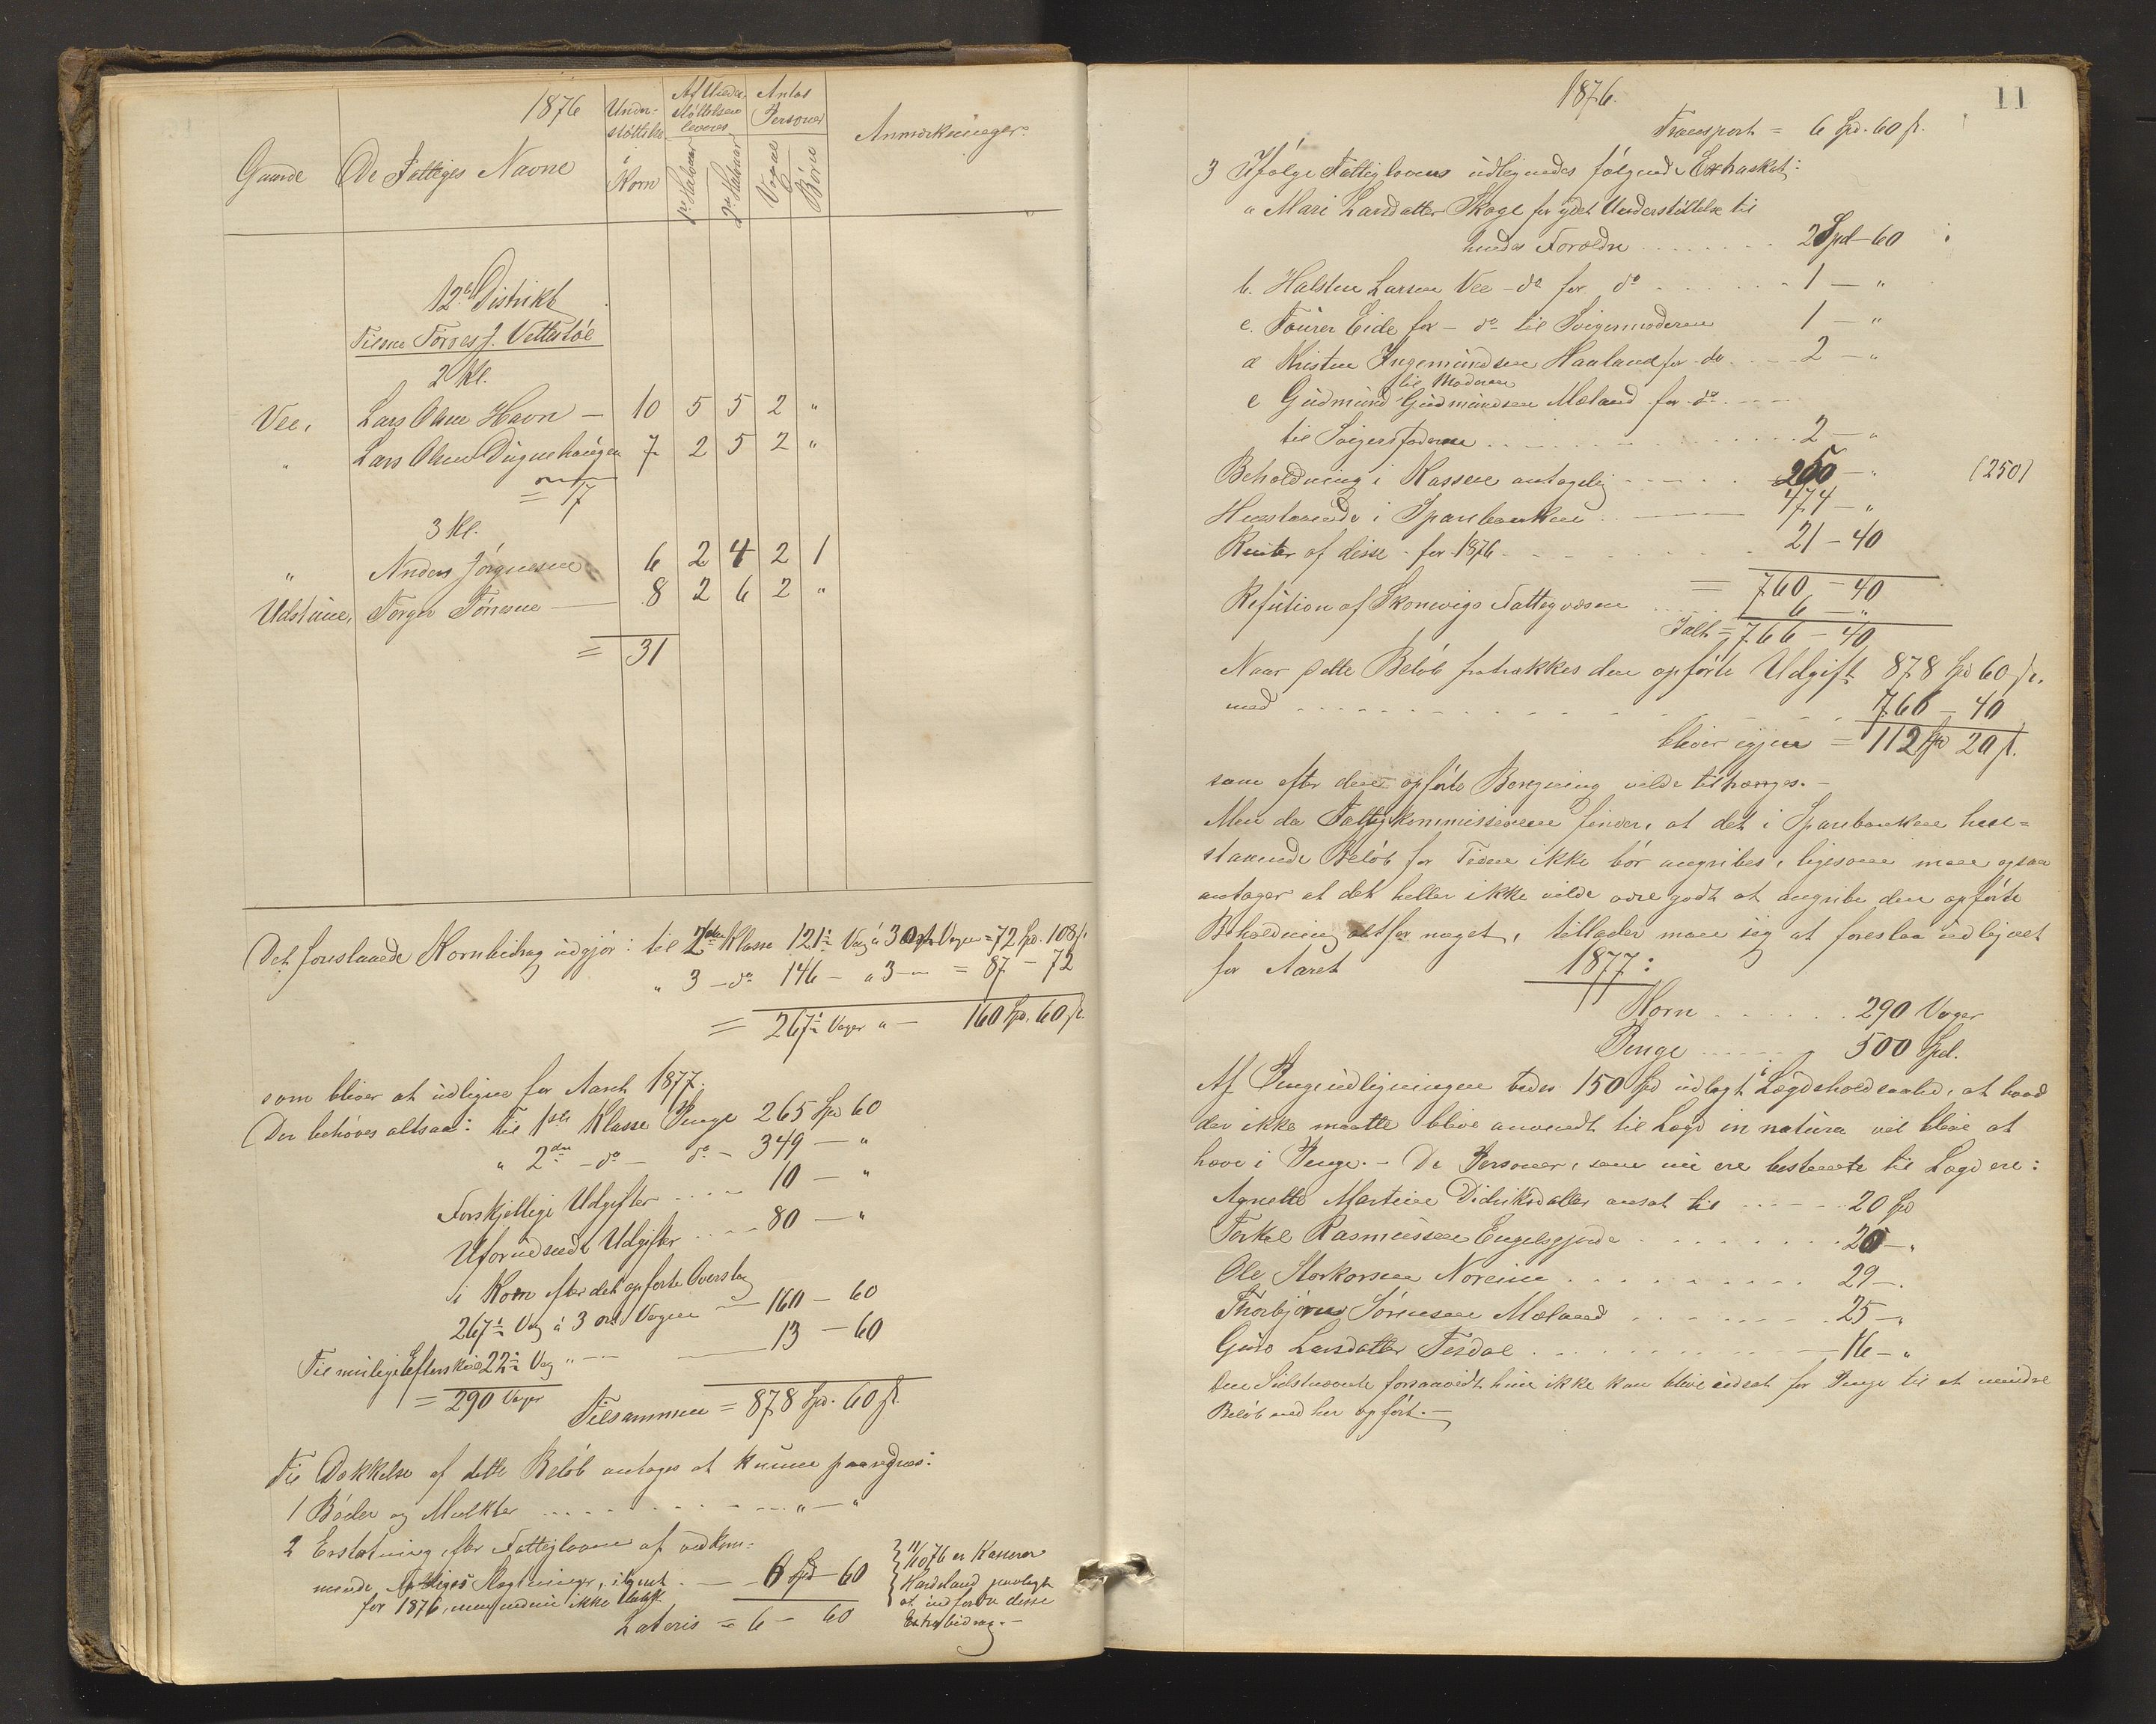 1876
Gaarde
De Fattiges Navne
Under-
støttelse
i
Korn
Af Under-
støttelsen
leveres
1ste Halvaar
2det Halvaar
Antal
Personer
Voxne
Børn
Anmærkninger.
12te Distrikt
Tilsm Torres J. Vettestøe
2 Kl.
Vee, Lars Olsen Havn — 10 5 5 2 "
" Lars Olsen Dugnehougen 7 2 5 2 "
= 17
3 Kl.
" Anders Jørgensen 6 2 4 2 1
Udstuine, Torger Tørresen — 8 2 6 2 "
= 31
Det foreslaaede Kornbidrag udgjør: til 2den Klasse 121½ Vog à 3 Ort Vogen = 72 Spd. 108 s.
" 3 — do 146 — à 3 — = 87 — 72
= 267½ Voger a — 160 Spd. 60 s.
som bliver at udligne for Aaret 1877.
Der behøves altsaa: til 1ste Klasse Penge 265 Spd 60
" 2den — do — do — 349 — "
Forskjellige Udgifter .... — 10 — "
Uforudseede Udgifter .... — 80 — "
i Korn efter det opførte Overslag
267½ Vog à 3 ort Vogen — 160 — 60
Til mulige Efterskud 22½ Vog " — 13 — 60
= 290 Voger
Tilsammen = 878 Spd. 60 s.
Til Dækkelse af dette Beløb antages at kunne paaregnes:
1 Bøder og Mulkter .......... " — "
2 Erstatning efter Fattigloven af vedkom-
mende Fattiges Slægtninger, ilignet — 6 Spd 60
for 1876, men endnu ikke
Lateris = 6 — 60
11/10 76 er Kasserer
Hardeland paalagt
at indfordre disse
Extrabidrag. —
11
1876.
Transport = 6 Spd. 60 s.
3 Ifølge Fattiglovens udlignedes følgende Extraskat:
a Mari Larsdatter Skoge for ydet Understøttelse til
hendes Forældre ........ 2 Spd — 60
b. Halsten Larsen Vee — do for do ....... 1 — "
c. Tourer Eide for — do til Svigermoderen 1 — "
d Kristen Ingemundsen Haaland for do .... 2 — "
til Moderen
e Gudmund Gudmundsen Mæland for do ....
til Svigersfaderen .............. 2 — "
Beholdning i Kassen antagelig ...... 250 — " (250)
Henstaaende i Sparebanken ...... 474 — "
Renter af disse for 1876 ........ 21 — 40
= 760 — 40
Refution af Skonevigs Fattigvæsen ..... 6 — "
Ialt = 766 — 40
Naar dette Beløb fratrækkes den opførte Udgift 878 Spd 60 s.
med ............ 766 — 40
bliver igjen = 112 Spd 20 s.
som efter den opførte Beregning vilde tiltrænges. —
Men da Fattigkommissionen finder, at det i Sparebanken hen-
staaende Beløb for Tiden ikke bør angribes, ligesom man ogsaa
antager at det heller ikke vilde være godt at angribe den opførte
Beholdning altfor meget, tillader man sig at foreslaa udlignet
for Aaret 1877:
Korn ...... 290 Voger
Penge ...... 500 Spd.
Af Pengeudligningen bedes 150 Spd udlagt i Lægdsholdsaaled, at hvad
der ikke maatte blive anvendt til Lægd in natura vil blive at
hæve i Penge. — De Personer, som nu ere bestemte til Lægd ere:
Agnette Martine Didriksdatter ansat til ...... 20 Spd
Torkel Rasmussen Engelsgjerde ......... 20 — "
Ole Storkorsen Noreim ......... 29 — "
Thorbjørn Sørensen Mæland ........ 25 — "
Guro Larsdatter Tesdal ......... 16 — "
den Sidstnævnte forsaavidt hun ikke kan blive indsat for Penge til et mindre
Beløb end her opført. —